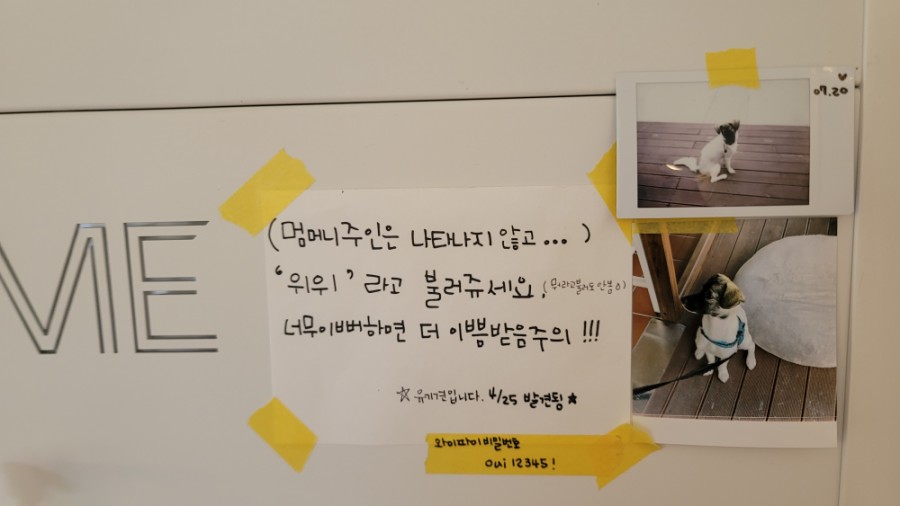 ME
(멈머니주인은 나타나지 않고... )
"위위" 라고 불러쥬세요.
너무이뻐하면 더 이쁨받음주의 !!!
☆유기견입니다. 4/25 발견됨★
와이파이비밀번호
oui 12345!
♥
07.20